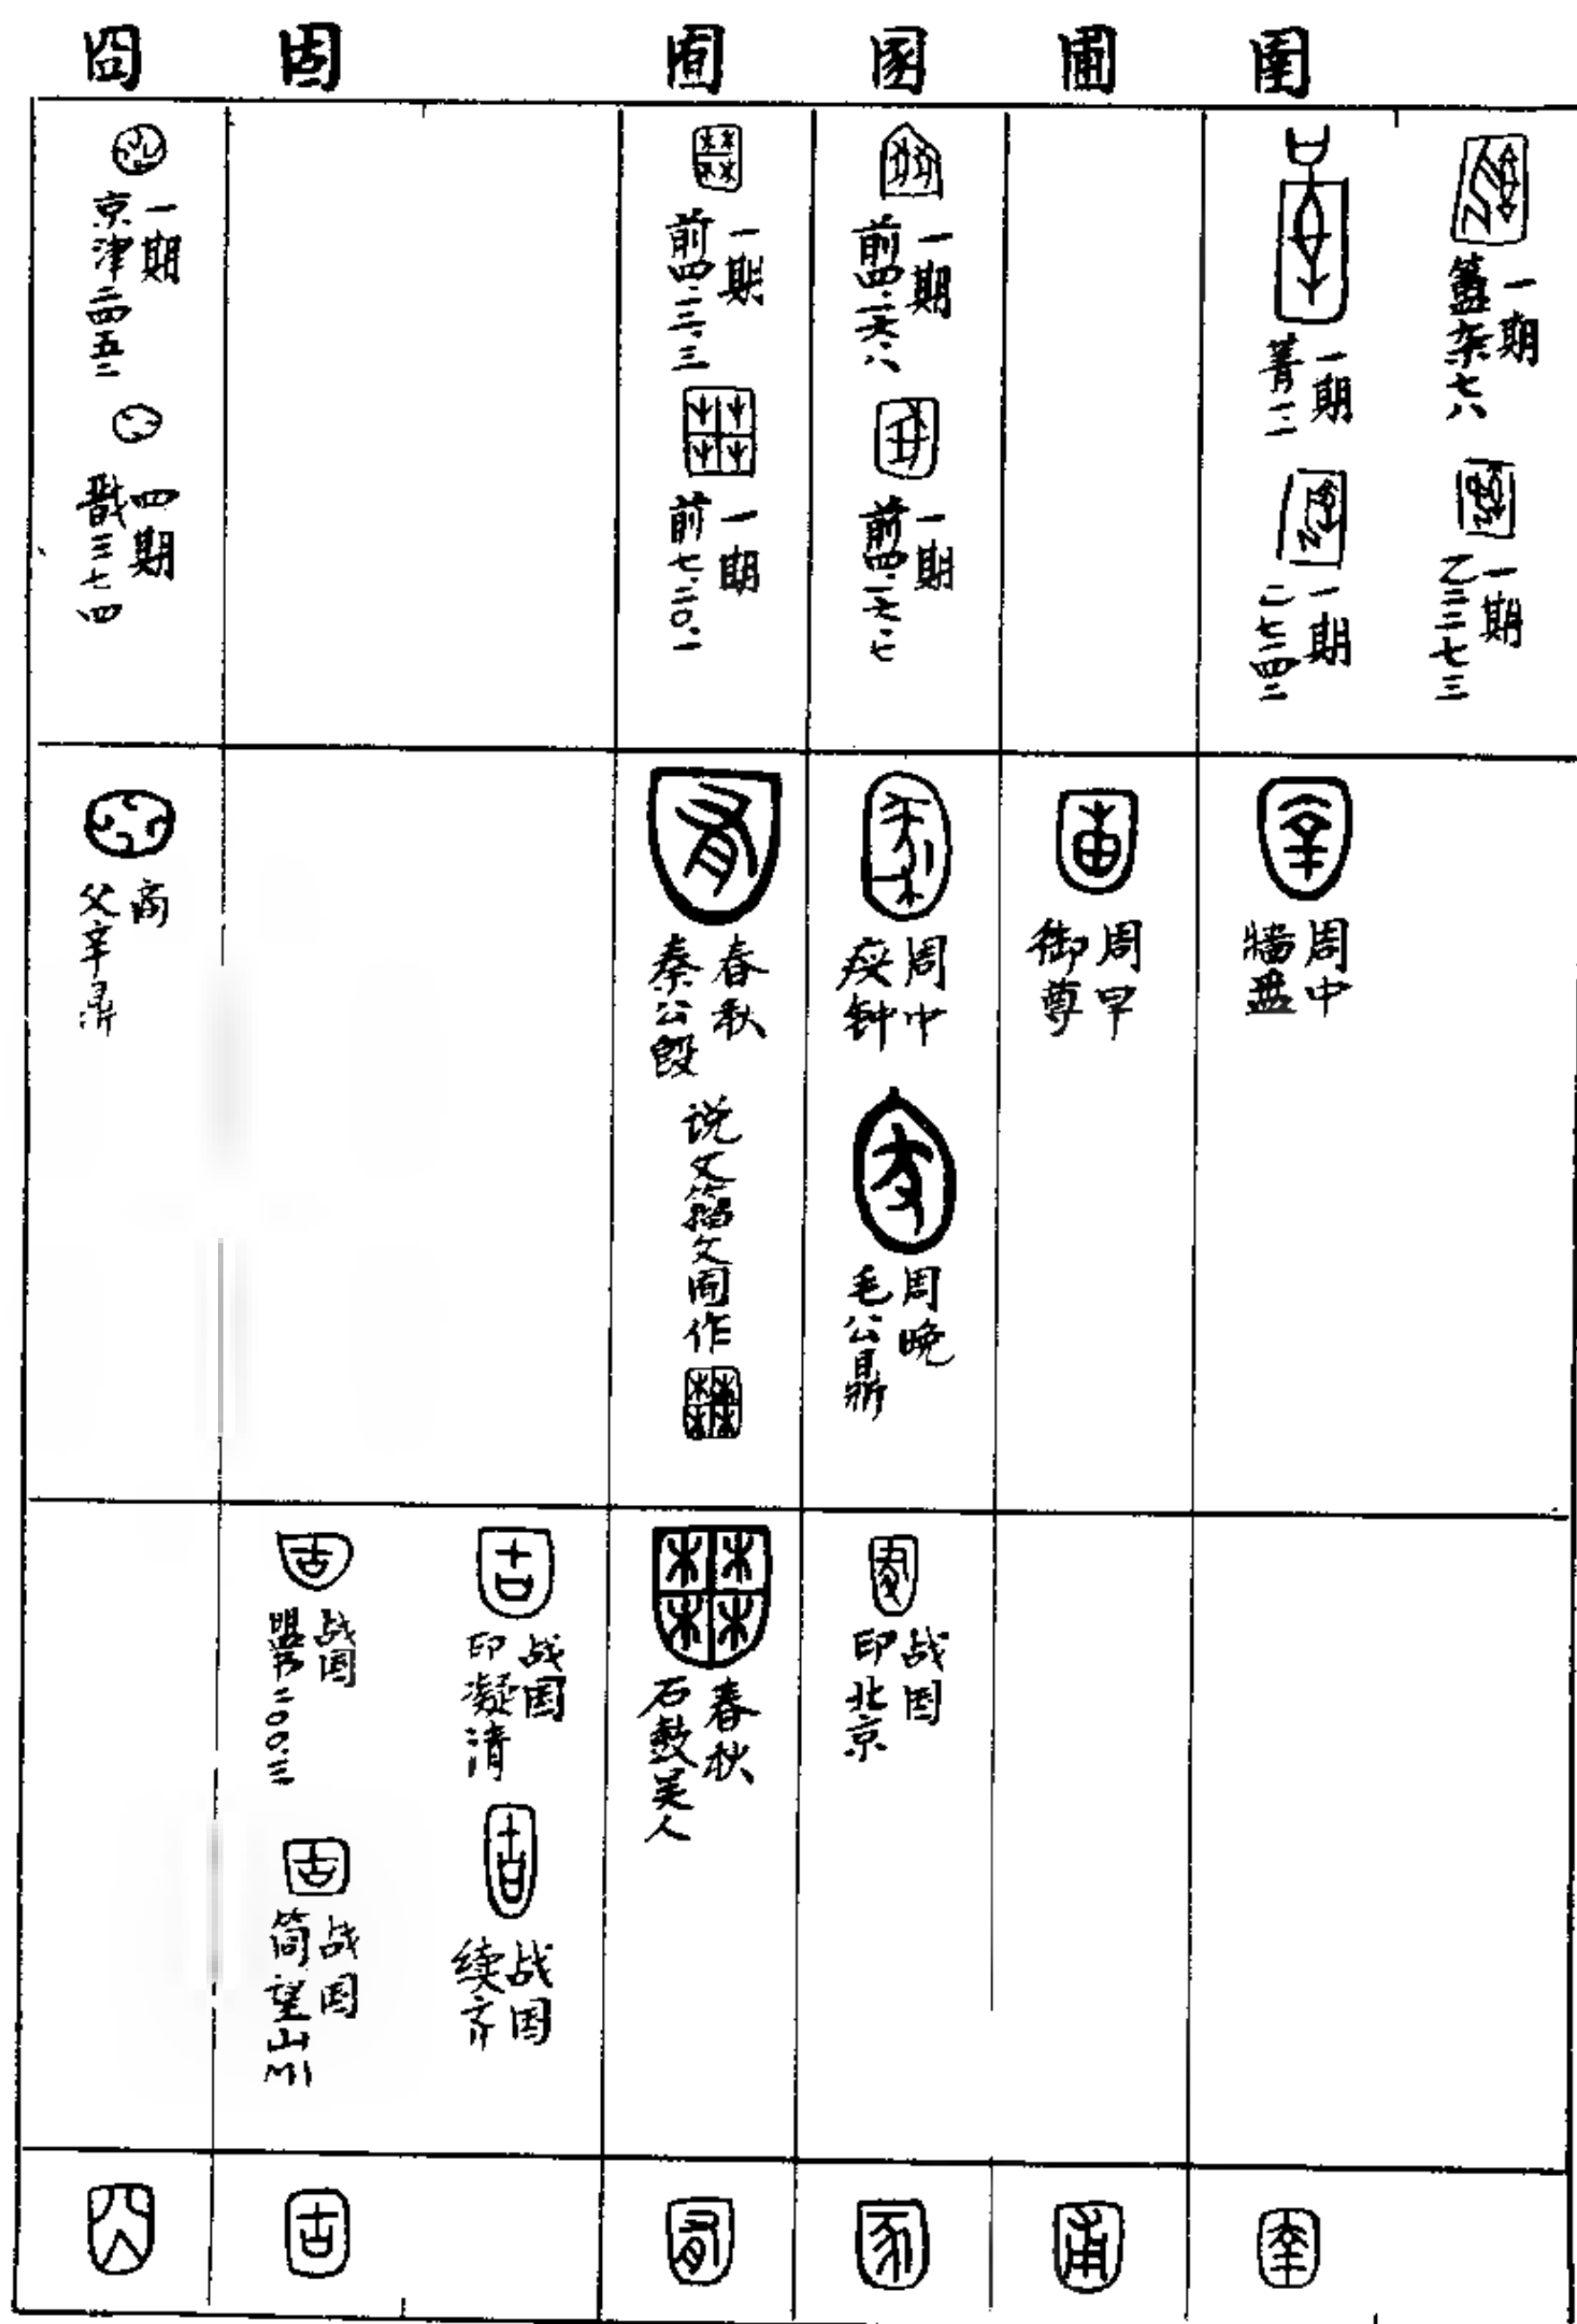 囧 固 囿 圂 圃 圉
一期
京津二四五二
四期
戬三七四
一期
前四·一二·三
一期
前七·二〇·一
一期
前四·一六·八
一期
前四·一六·七
一期
菁三
一期
乙七一四二
一期
簠杂七六
一期
乙二二七三
商
父辛鼎
春秋
秦公𣪘
说文籀文囿作
周中
㾓钟
周晚
毛公鼎
周早
御尊
周中
牆盘
战国
盟书二〇〇·三
战国
简望山M1
战国
印凝清
战国
续齐
春秋
石鼓吴人
战国
印北京